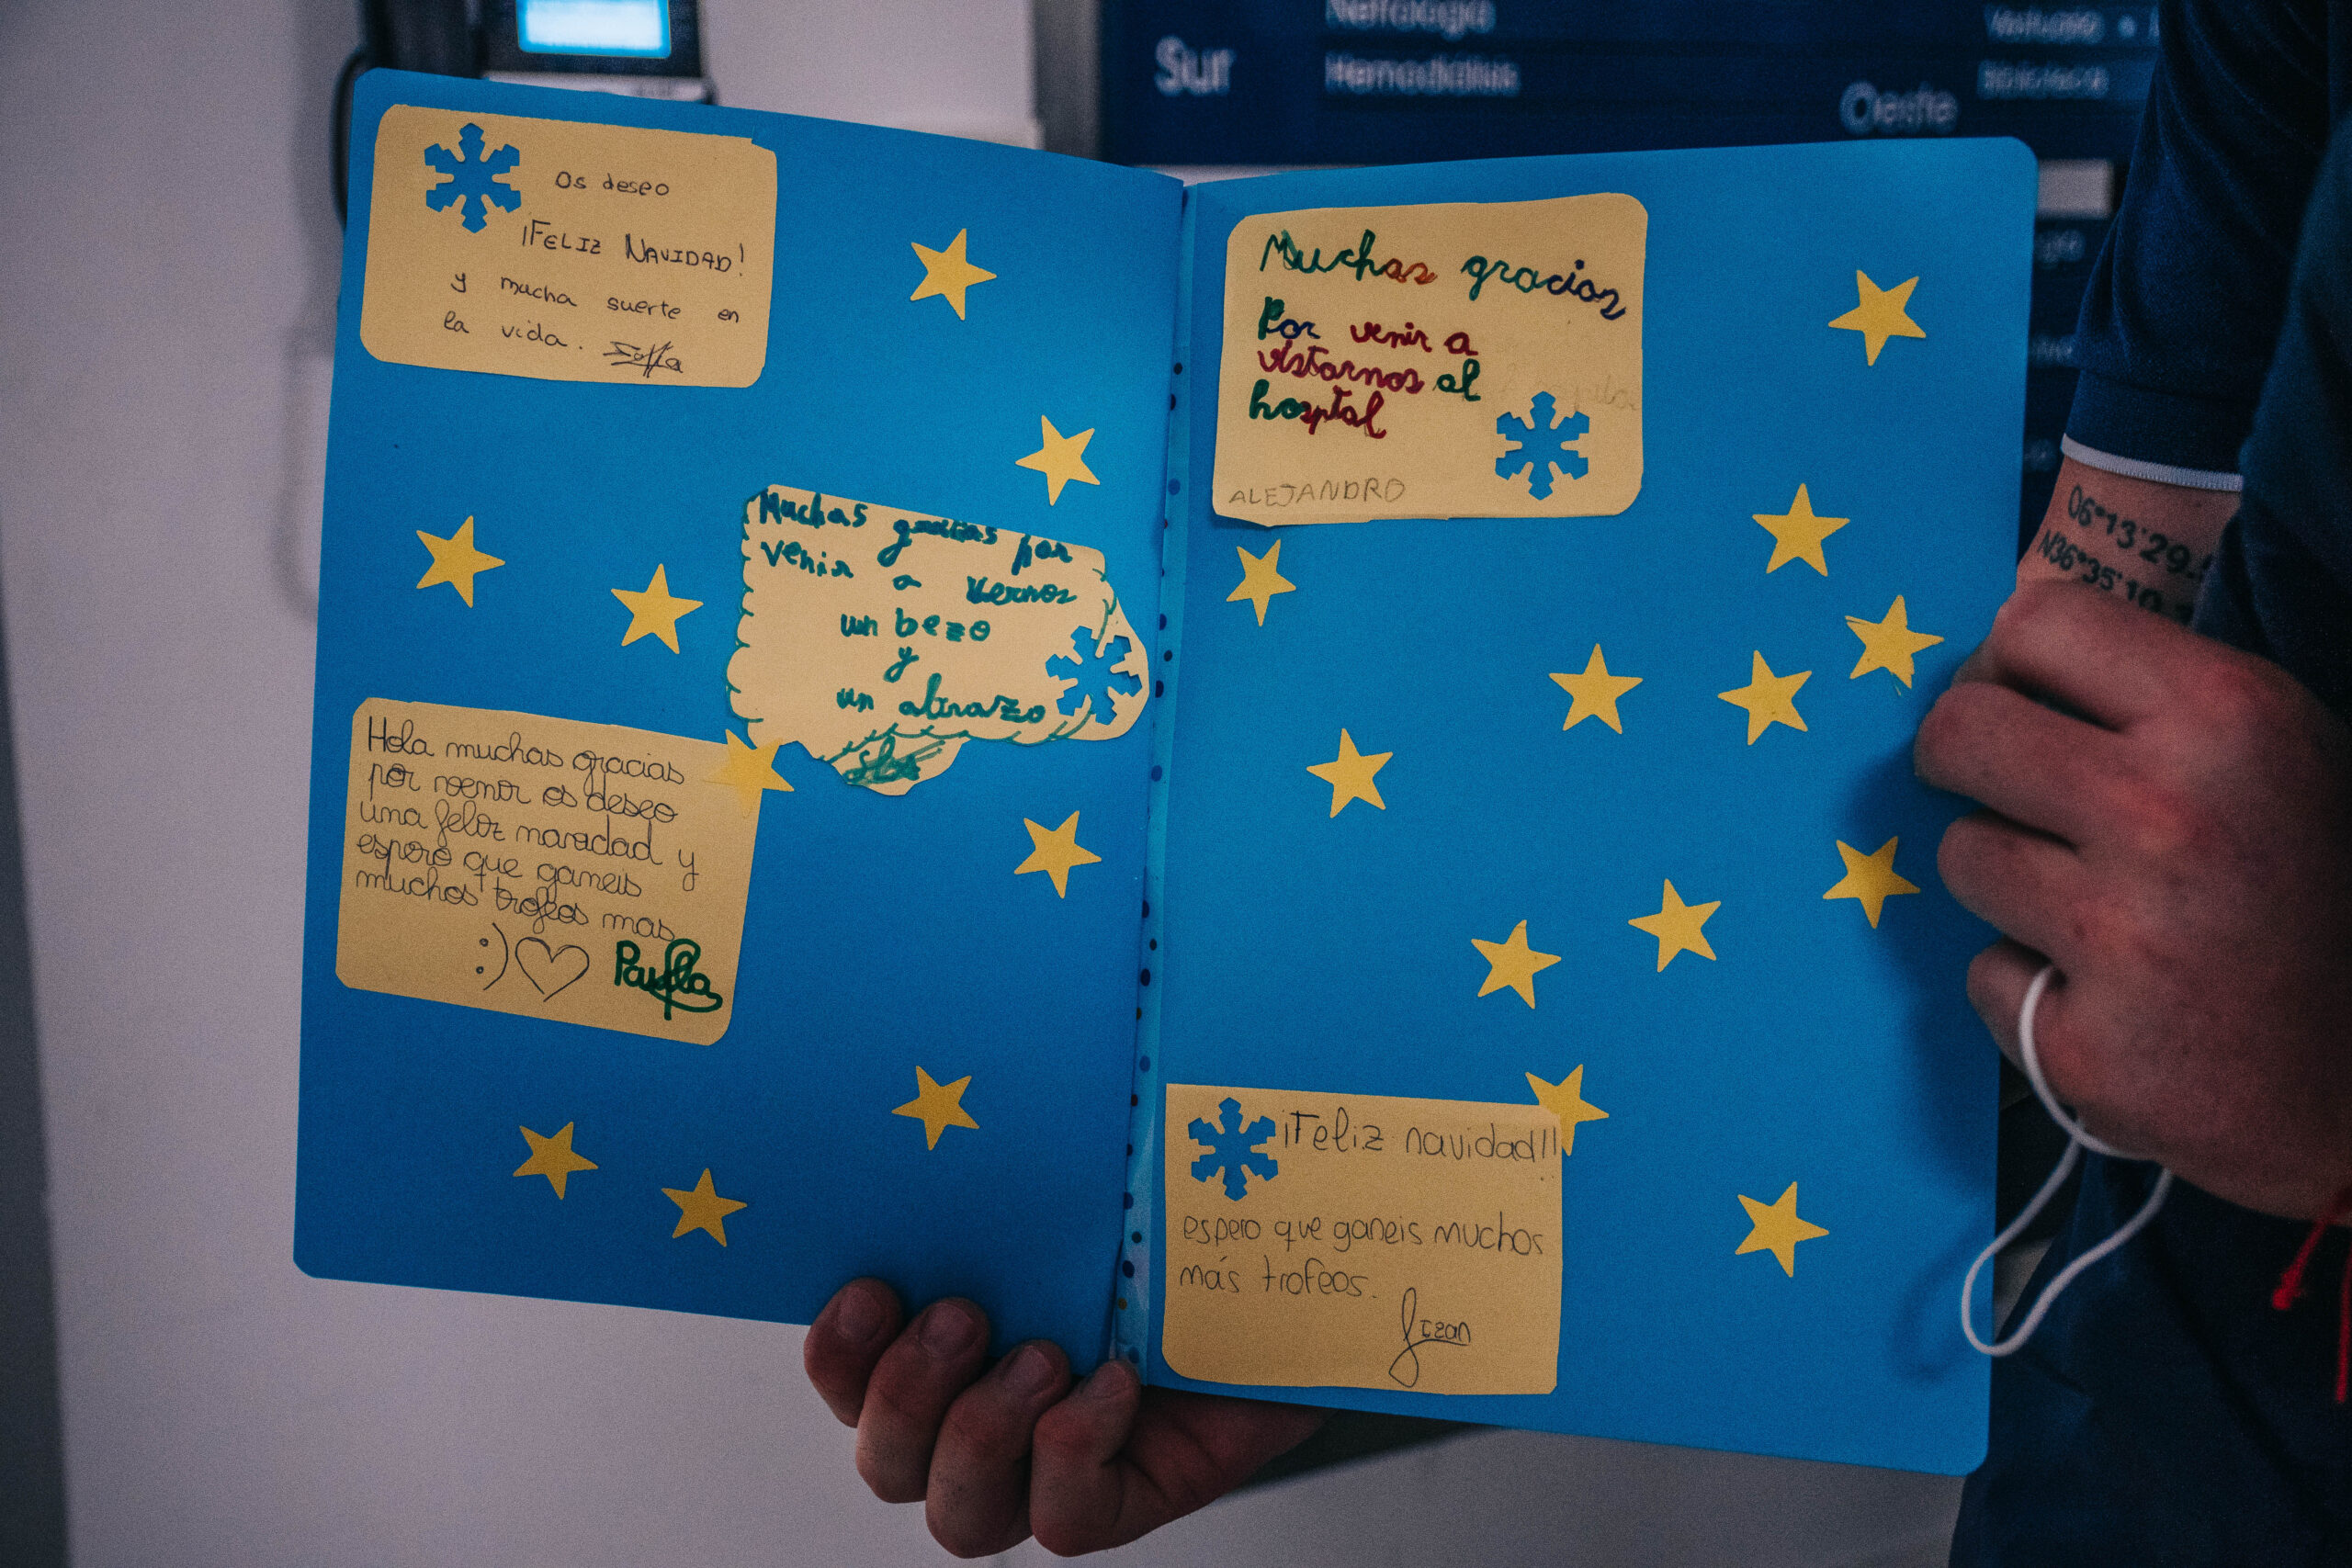 Sur
Hemodiálisis
Oeste
Os deseo
¡FELIZ NAVIDAD!
y mucha suerte en
la vida.
Muchas gracias por
venir a vernos
un bezo
y
un abrazo
Hola muchas gracias
por venir os deseo
una feliz navidad y
espero que ganeis
muchos trofeos mas
:)
Muchas gracias
Por venir a
vistarnos al
hosptal
ALEJANDRO
¡Feliz navidad!!
espero que ganeis muchos
más trofeos.
Jizan
06°13'29.
N36°35'10